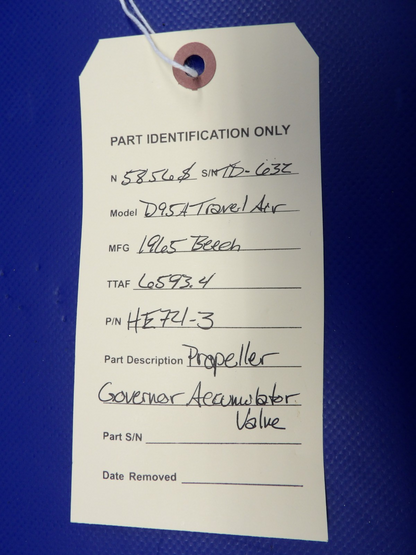 PART IDENTIFICATION ONLY
N 5856$ S/N TD-632
Model D95A Travel Air
MFG 1965 Beech
TTAF 6593.4
P/N HE741-3
Part Description Propeller
Governor Accumulator
Valve
Part S/N
Date Removed